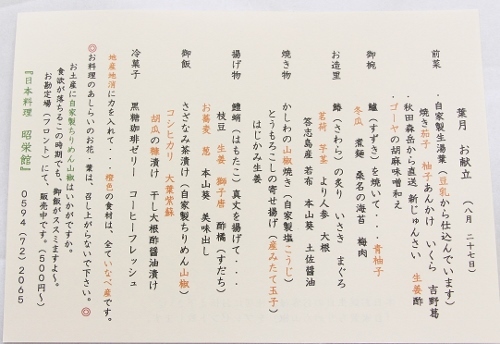 葉月 お献立 (八月 二十七日)
前菜 ・自家製生湯葉(豆乳から仕込んでいます)
焼き茄子 柚子あんかけ いくら 吉野葛
・秋田森岳から直送 新じゅんさい 生姜酢
・ゴーヤの胡麻味噌和え
御椀 鱸(すずき)を焼いて・・・・青柚子
冬瓜 煮麺 桑名の海苔 梅肉
お造里 鰆(さわら)の炙り いさき まぐろ
茗荷 芋茎 より人参 大根
答志島産 若布 本山葵 土佐醤油
焼き物 かしわの山椒焼き(自家製塩こうじ)
とうもろこしの寄せ揚げ(産みたて玉子)
はじかみ生姜
揚げ物 鱧蛸(はもたこ)真丈を揚げて・・・・
枝豆 生姜 獅子唐 酢橘(すだち)
お蕎麦 葱 本山葵 美味出し
御飯 さざなみ茶漬け(自家製ちりめん山椒)
コシヒカリ 大葉紫蘇
胡瓜の糠漬け 干し大根酢醤油漬け
冷菓子 黒糖珈琲ゼリー コーヒーフレッシュ
地産地消に力を入れて・・・橙色の食材は、全ていなべ産です。
◎お料理のあしらいのお花・葉は、召し上がらないで下さい。◎
お土産に自家製ちりめん山椒はいかがですか。
食欲が落ちるこの時期でも、御飯がススミますよ〜。
お勘定場(フロント)にて、販売中です。(500円〜)
『日本料理 昭栄館』 0594(72)2065